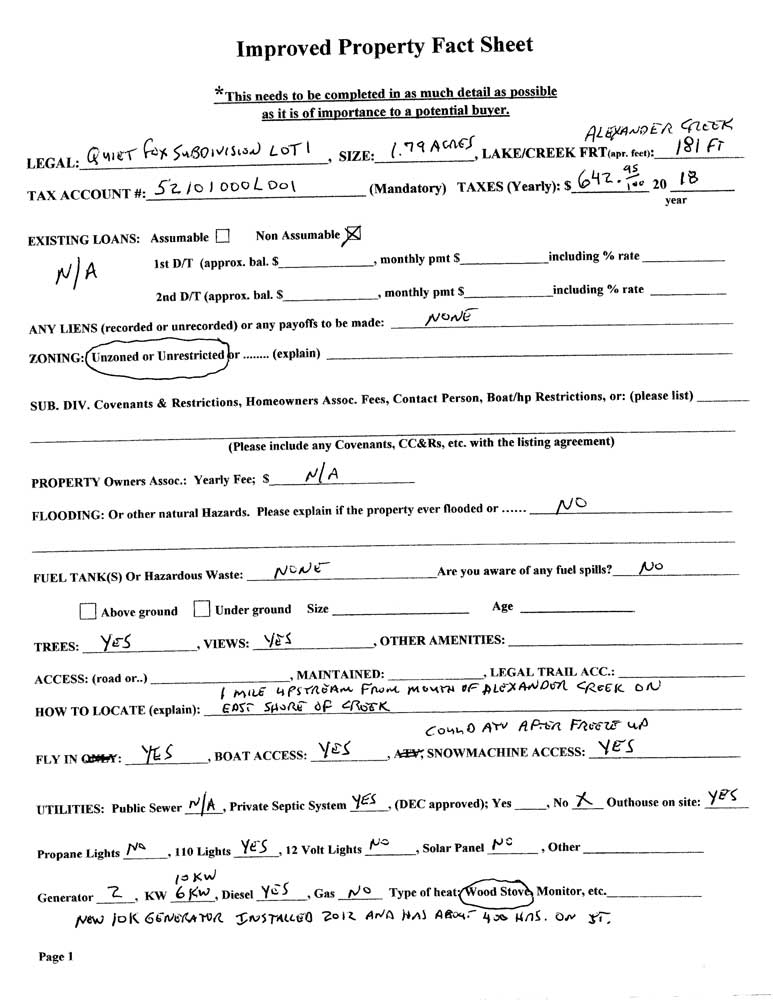 Improved Property Fact Sheet
*This needs to be completed in as much detail as possible
as it is of importance to a potential buyer.
ALEXANDER CREEK
LEGAL: QUIET FOX SUBDIVISION LOT 1, SIZE: 1.79 ACRES, LAKE/CREEK FRT(apr. feet): 181 FT
TAX ACCOUNT #: 52101000L001 (Mandatory) TAXES (Yearly): $ 642.95/100 20 18
year
EXISTING LOANS: Assumable ☐ Non Assumable ☒
N/A
1st D/T (approx. bal. $____, monthly pmt $____including % rate ____
2nd D/T (approx. bal. $____, monthly pmt $____including % rate ____
ANY LIENS (recorded or unrecorded) or any payoffs to be made: NONE
ZONING: Unzoned or Unrestricted or ........ (explain) ____
SUB. DIV. Covenants & Restrictions, Homeowners Assoc. Fees, Contact Person, Boat/hp Restrictions, or: (please list) ____
(Please include any Covenants, CC&Rs, etc. with the listing agreement)
PROPERTY Owners Assoc.: Yearly Fee; $ N/A
FLOODING: Or other natural Hazards. Please explain if the property ever flooded or ...... NO
FUEL TANK(S) Or Hazardous Waste: NONE Are you aware of any fuel spills? NO
☐ Above ground ☐ Under ground Size ____ Age ____
TREES: YES, VIEWS: YES, OTHER AMENITIES: ____
ACCESS: (road or..) ____, MAINTAINED: ____, LEGAL TRAIL ACC.: ____
1 MILE UPSTREAM FROM MOUTH OF ALEXANDER CREEK ON
HOW TO LOCATE (explain): EAST SHORE OF CREEK
COULD ATV AFTER FREEZE UP
FLY IN ONLY: YES, BOAT ACCESS: YES, ATV, SNOWMACHINE ACCESS: YES
UTILITIES: Public Sewer N/A, Private Septic System YES, (DEC approved); Yes ____, No X Outhouse on site: YES
Propane Lights NO, 110 Lights YES, 12 Volt Lights NO, Solar Panel NO, Other ____
10 KW
Generator 2, KW 6 KW, Diesel YES, Gas NO Type of heat: Wood Stove, Monitor, etc.____
NEW 10K GENERATOR INSTALLED 2012 AND HAS ABOUT 400 HRS. ON IT.
Page 1